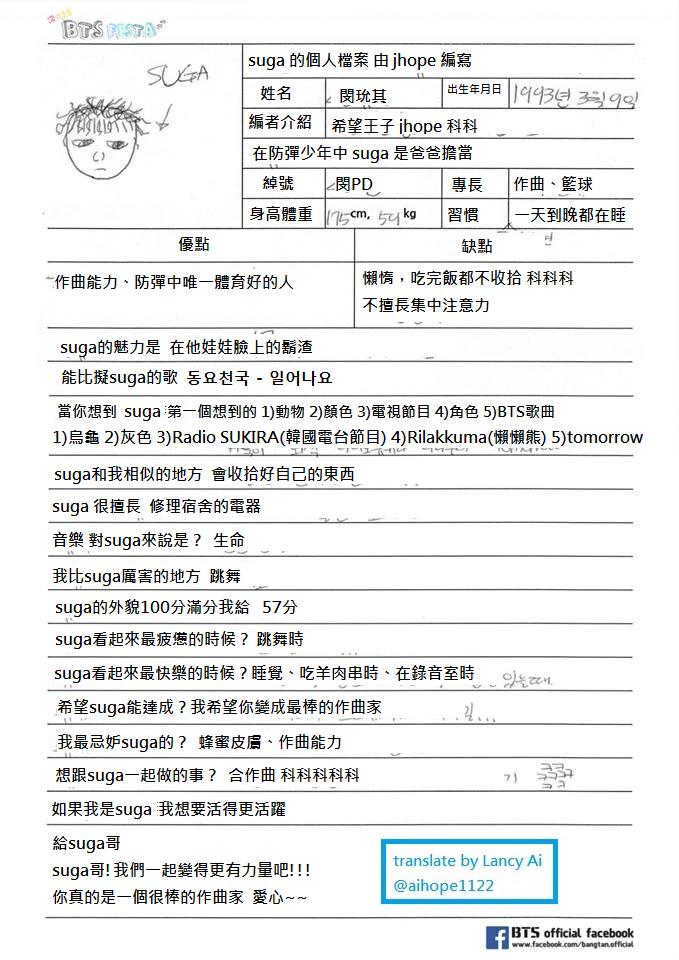 BTS FESTA
SUGA
suga 的個人檔案 由 jhope 編寫
姓名 閔玧其 出生年月日 1993년 3월 9일
編者介紹 希望王子 jhope 科科
在防彈少年中 suga 是爸爸擔當
綽號 閔PD 專長 作曲、籃球
身高體重 175cm, kg 習慣 一天到晚都在睡
優點 缺點
作曲能力、防彈中唯一體育好的人
懶惰，吃完飯都不收拾 科科科
不擅長集中注意力
suga的魅力是 在他娃娃臉上的鬍渣
能比擬suga的歌 동요천국 - 일어나요
當你想到 suga 第一個想到的 1)動物 2)顏色 3)電視節目 4)角色 5)BTS歌曲
1)烏龜 2)灰色 3)Radio SUKIRA(韓國電台節目) 4)Rilakkuma(懶懶熊) 5)tomorrow
suga和我相似的地方 會收拾好自己的東西
suga 很擅長 修理宿舍的電器
音樂 對suga來說是？ 生命
我比suga厲害的地方 跳舞
suga的外貌100分滿分我給 57分
suga看起來最疲憊的時候？ 跳舞時
suga看起來最快樂的時候？睡覺、吃羊肉串時、在錄音室時 있을때.
希望suga能達成？我希望你變成最棒的作曲家
我最忌妒suga的？ 蜂蜜皮膚、作曲能力
想跟suga一起做的事？ 合作曲 科科科科科 기
如果我是suga 我想要活得更活躍
給suga哥
suga哥! 我們一起變得更有力量吧!!!
你真的是一個很棒的作曲家 愛心~~
translate by Lancy Ai
@aihope1122
BTS official facebook
www.facebook.com/bangtan.official